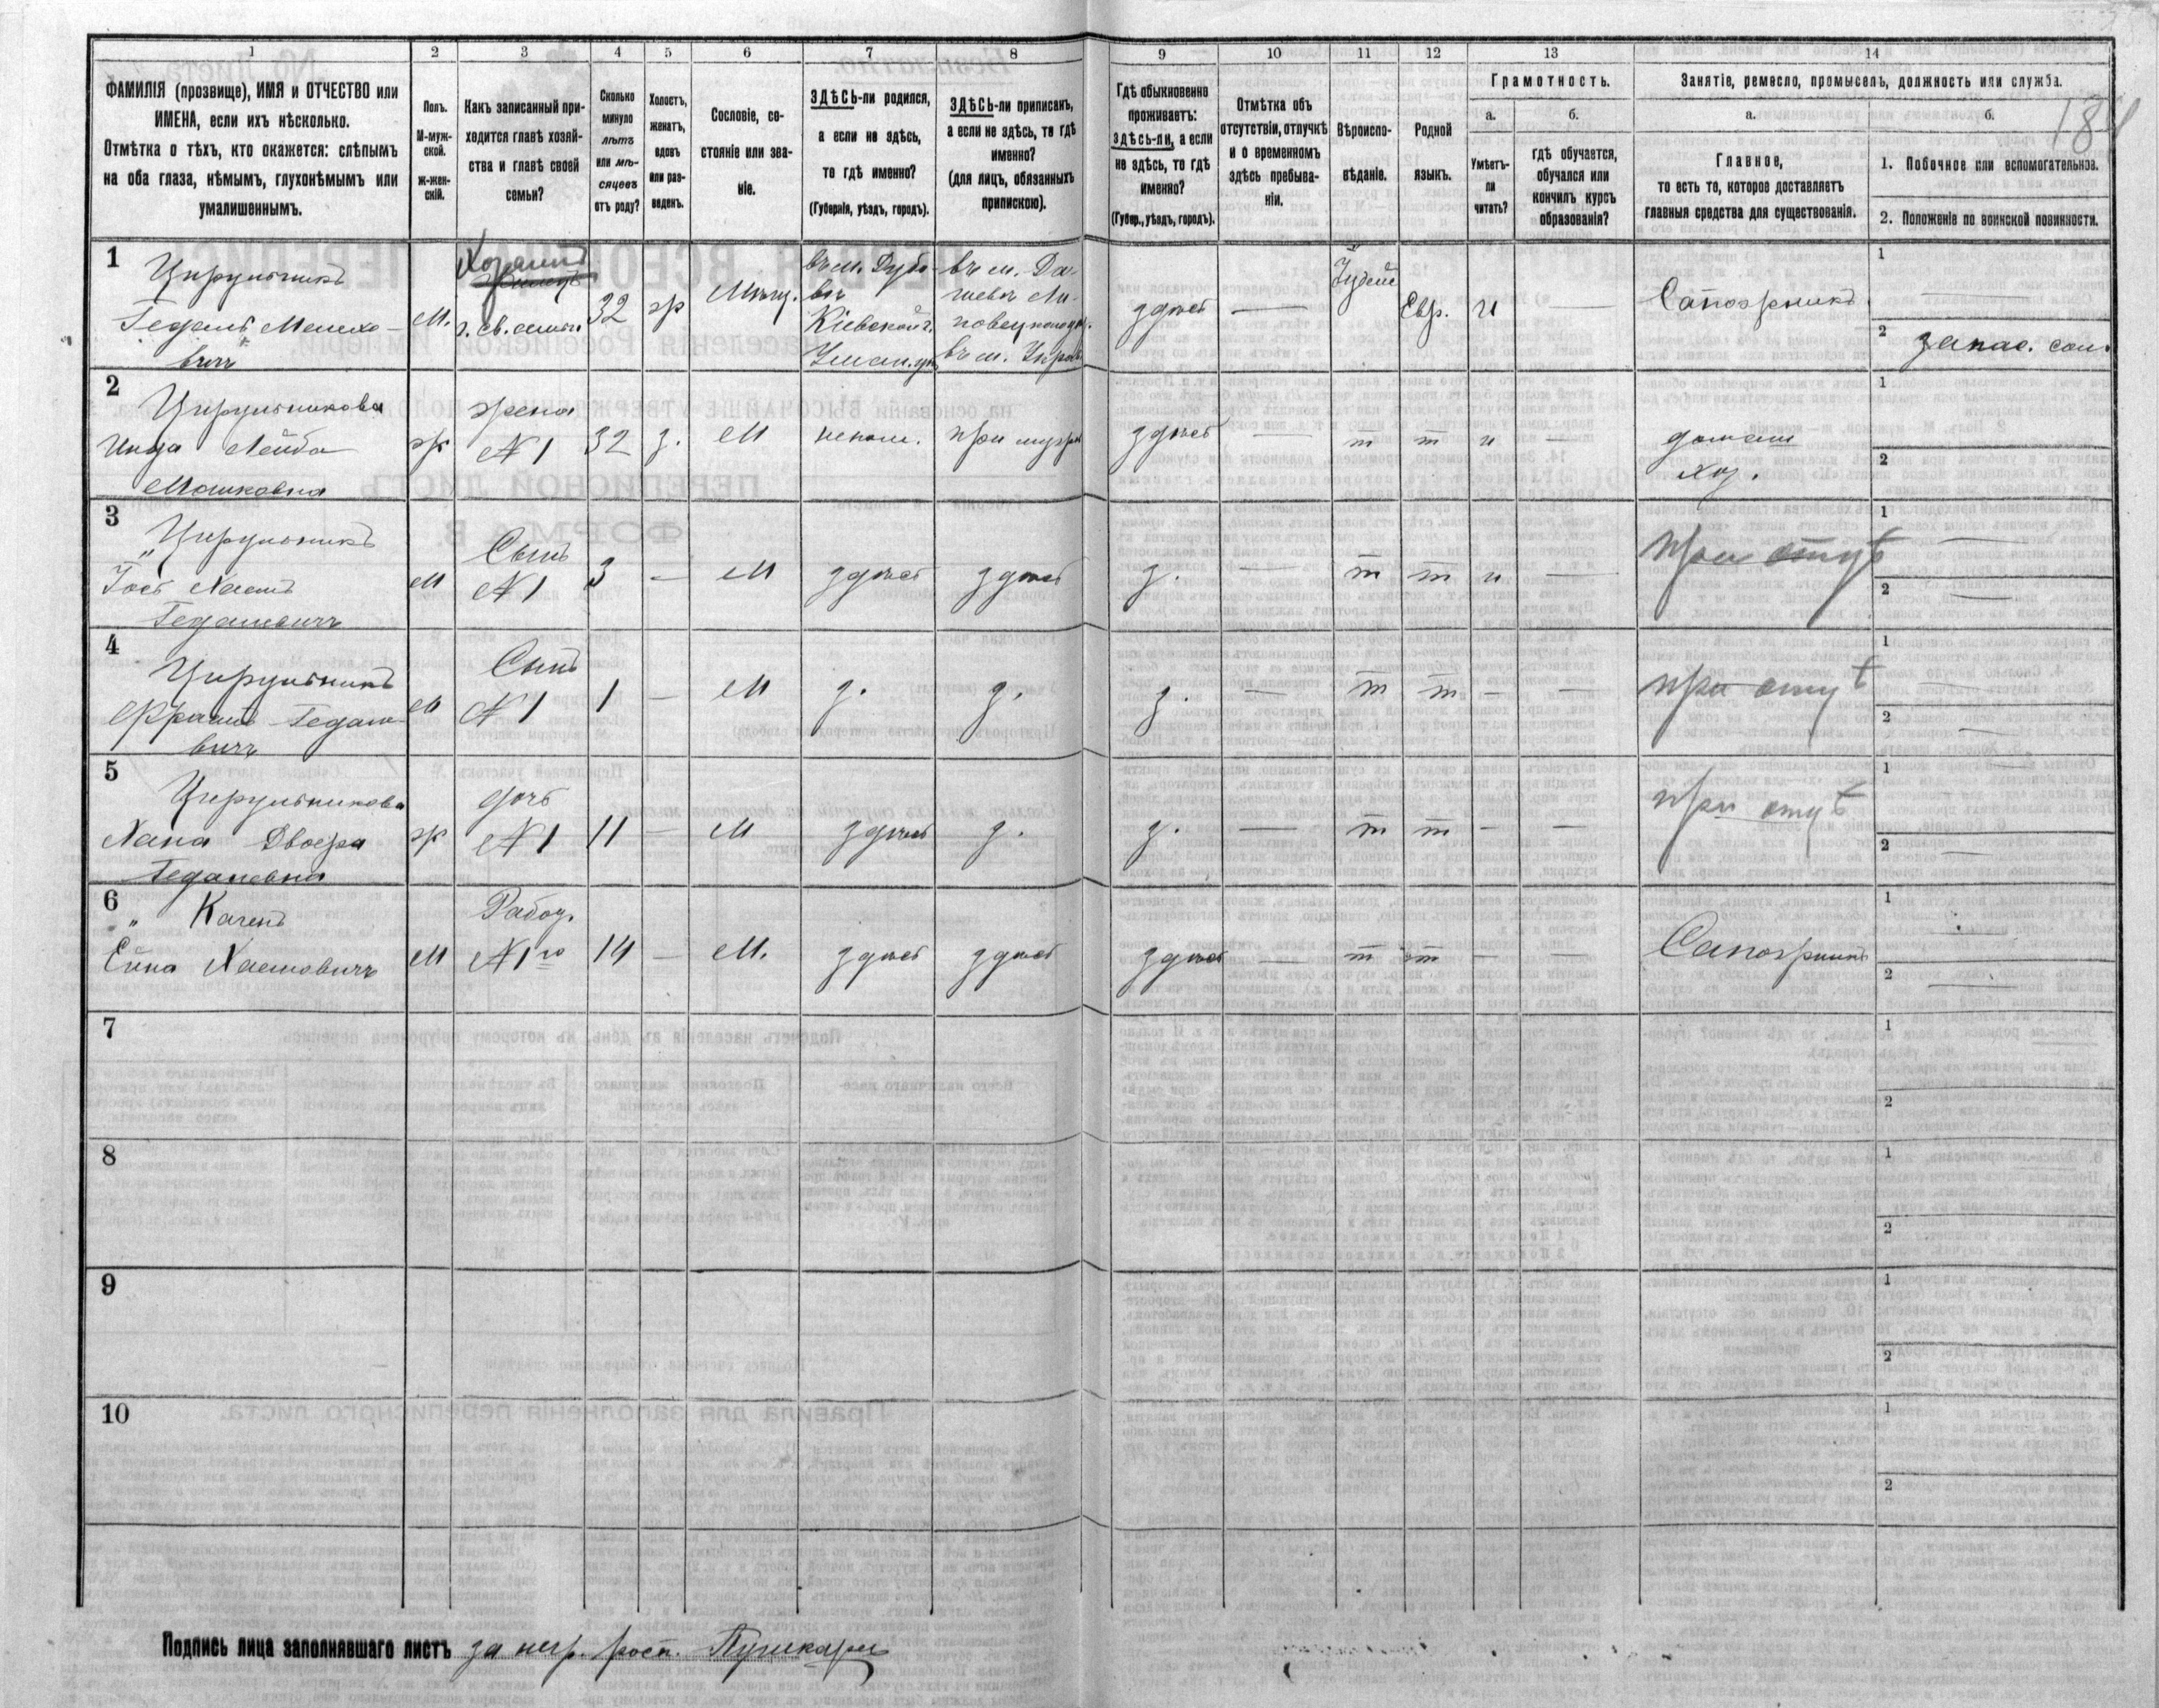 1 2 3 4 5 6 7 8 9 10 11 12 13 14
ФАМИЛІЯ (прозвище), ИМЯ и ОТЧЕСТВО или
ИМЕНА, если ихъ нѣсколько.
Отмѣтка о тѣхъ, кто окажется: слѣпымъ
на оба глаза, нѣмымъ, глухонѣмымъ или
умалишеннымъ.
Полъ.
М-муж-
ской.
Ж-жен-
скій.
Какъ записанный при-
ходится главѣ хозяй-
ства и главѣ своей
семьи?
Сколько
минуло
лѣтъ
или мѣ-
сяцевъ
отъ роду?
Холостъ,
женатъ,
вдовъ
или раз-
веденъ.
Сословіе, со-
стояніе или зва-
ніе.
ЗДѢСЬ-ли родился,
а если не здѣсь,
то гдѣ именно?
(Губернія, уѣздъ, городъ).
ЗДѢСЬ-ли приписанъ,
а если не здѣсь, то гдѣ
именно?
(для лицъ, обязанныхъ
припискою).
Гдѣ обыкновенно
проживаетъ:
здѣсь-ли, а если
не здѣсь, то гдѣ
именно?
(Губер., уѣздъ, городъ).
Отмѣтка объ
отсутствіи, отлучкѣ
и о временномъ
здѣсь пребыва-
ніи.
Вѣроиспо-
вѣданіе.
Родной
языкъ.
Грамотность.
а.
Умѣетъ-
ли
читать?
б.
гдѣ обучается,
обучался или
кончилъ курсъ
образованія?
Занятіе, ремесло, промыселъ, должность или служба.
а.
Главное,
то есть то, которое доставляетъ
главныя средства для существованія.
б.
1. Побочное или вспомогательное.
2. Положеніе по воинской повинности.
184
1
Цирульникъ
Гедаль
вичъ
М.
Хозяинъ
г. св. семьи
32
ж
Мѣщ.
въ м.
Кіевской г.
въ м.
здѣсь
—
Іудей
Евр.
и
—
Сапожникъ
1
2 запас. сол.
2
Цирульникова
Лейба
Мошковна
ж
жена
№ 1
32
з.
М
при мужѣ
здѣсь
—
т
т
и
—
домаш
хоз.
1
2
3
„ Цирульникъ
Гедалевичъ
М
Сынъ
№ 1
3
—
М
здѣсь
здѣсь
з.
—
т
т
и
—
при отцѣ
1 —
2 —
4
Цирульникъ
вичъ
М
Сынъ
№ 1
1
—
М
з.
з.
з.
—
т
т
—
—
при отцѣ
1 —
2 —
5
Цирульникова
Хана Двойра
Гедалевна
ж
дочь
№ 1
11
—
М
здѣсь
з.
з.
—
т
т
—
—
при отцѣ
1
2 —
6
„
М
Работ.
№ 1го
14
—
М.
здѣсь
здѣсь
здѣсь
—
т
т
—
—
Сапожникъ
1 —
2 —
7
1
2
8
1
2
9
1
2
10
1
2
Подпись лица заполнявшаго листъ за негр. росп.